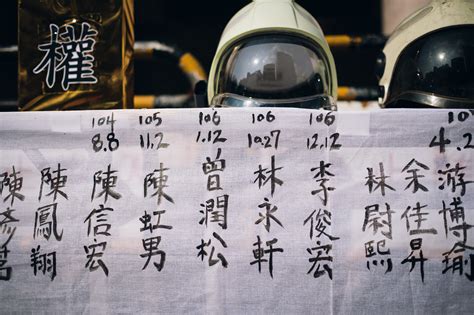 權
陳彥茗
陳鳳翔
104
8.8
陳信宏
105
11.2
陳虹男
106
1.12
曾潤松
106
10.27
林永軒
106
12.12
李俊宏
林尉熙
余佳昇
10
4.2
游博瑜